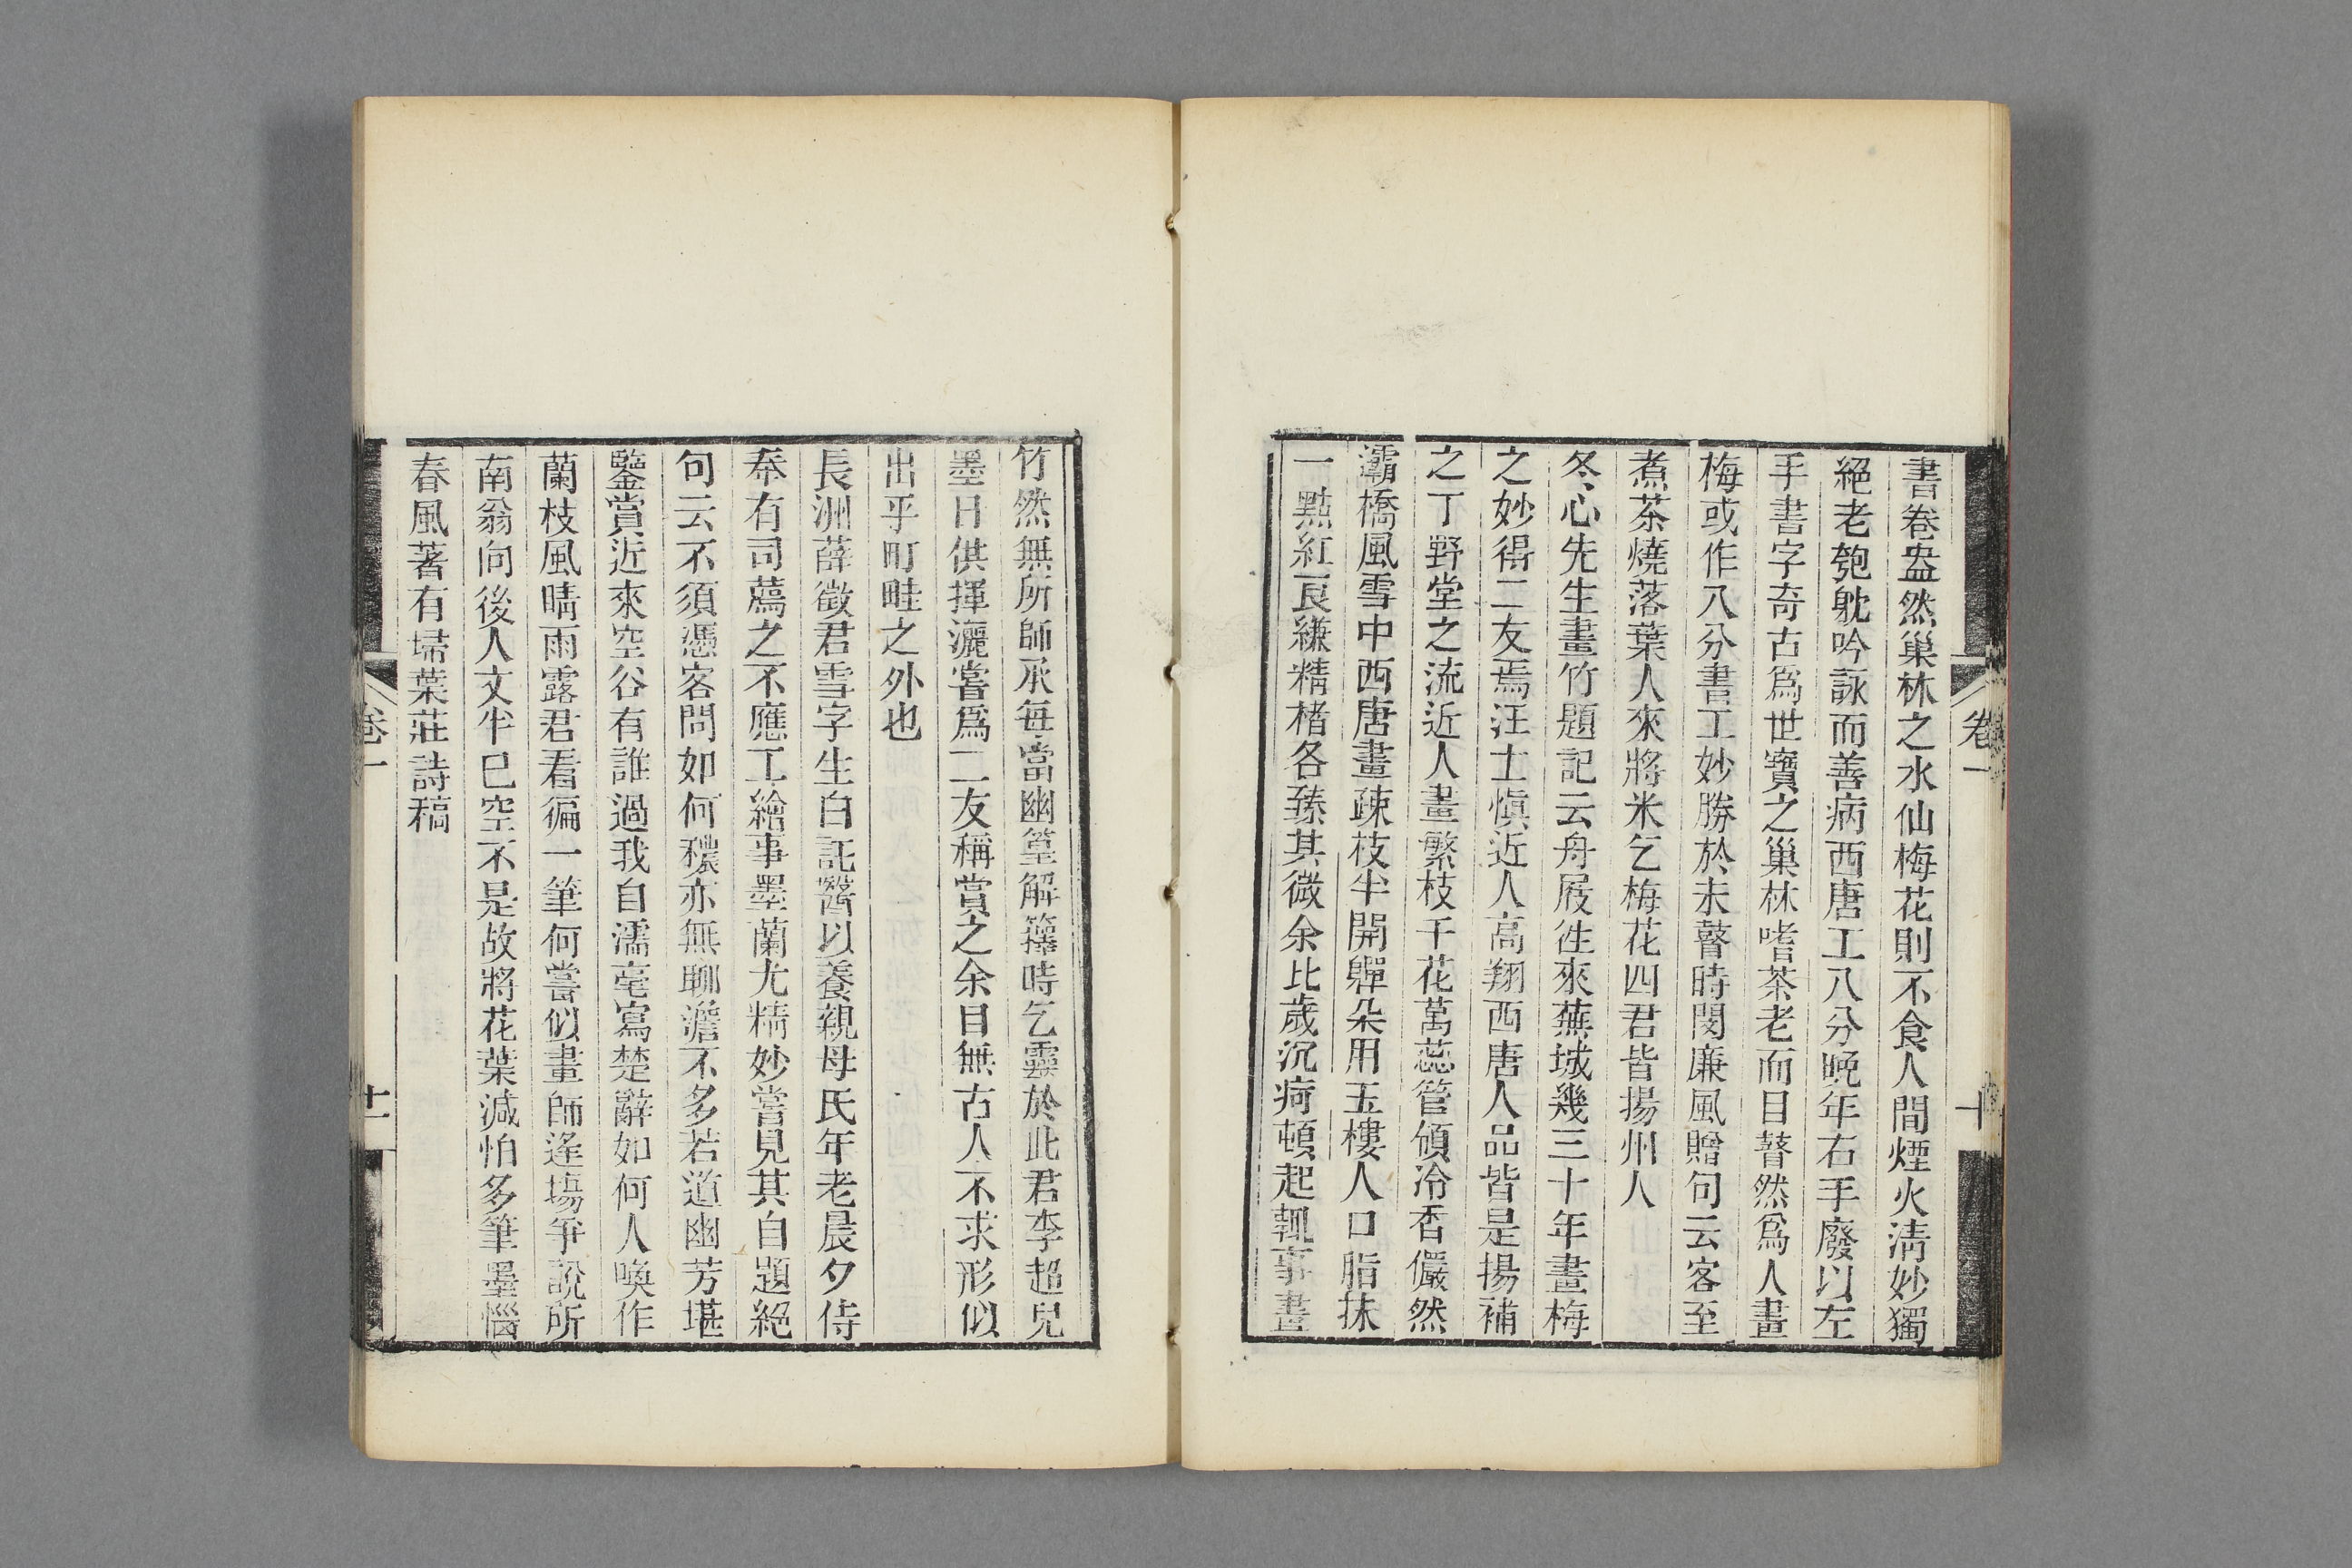 書卷盎然巢林之水仙梅花則不食人間煙火淸妙獨
絕老匏躭吟詠而善病西唐工八分晚年右手廢以左
手書字奇古爲世寶之巢林嗜茶老而目瞽然爲人畫
梅或作八分書工妙勝於未瞽時閔廉風贈句云客至
煮茶燒落葉人來將米乞梅花四君皆揚州人
冬心先生畫竹題記云舟屐徃來蕪城幾三十年畫梅
之妙得二友焉汪士愼近人高翔西唐人品皆是揚補
之丁野堂之流近人畫繁枝千花萬蕊管領冷香儼然
灞橋風雪中西唐畫疎枝半開嚲朵用玉樓人口脂抹
一點紅良縑精楮各臻其微余比歲沉痾頓起輒事畫
卷一
十
竹然無所師承每當幽篁解籜時乞靈於此君李超兒
墨日供揮灑嘗爲二友稱賞之余目無古人不求形似
出乎町畦之外也
長洲薛徵君雪字生白託醫以養親母氏年老晨夕侍
奉有司薦之不應工繪事墨蘭尤精妙嘗見其自題絕
句云不須憑客問如何穠亦無聊澹不多若道幽芳堪
鑒賞近來空谷有誰過我自濡毫寫楚辭如何人喚作
蘭枝風晴雨露君看徧一筆何嘗似畫師逢塲爭說所
南翁向後人文半已空不是故將花葉減怕多筆墨惱
春風著有埽葉莊詩稿
卷一
十一